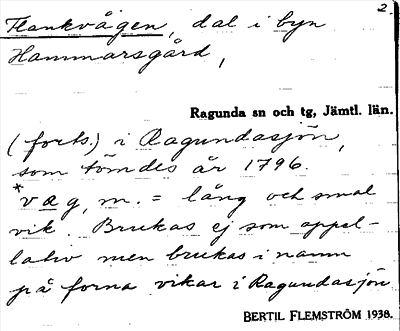 2.
Flankvågen, dal i byn
Hammarsgård,
Ragunda sn och tg, Jämtl. län.
(forts.) i Ragundasjön,
som tömdes år 1796.
*våg, m. = lång och smal
vik. Brukas ej som appel-
lativ men brukas i namn
på forna vikar i Ragundasjön
BERTIL FLEMSTRÖM 1938.